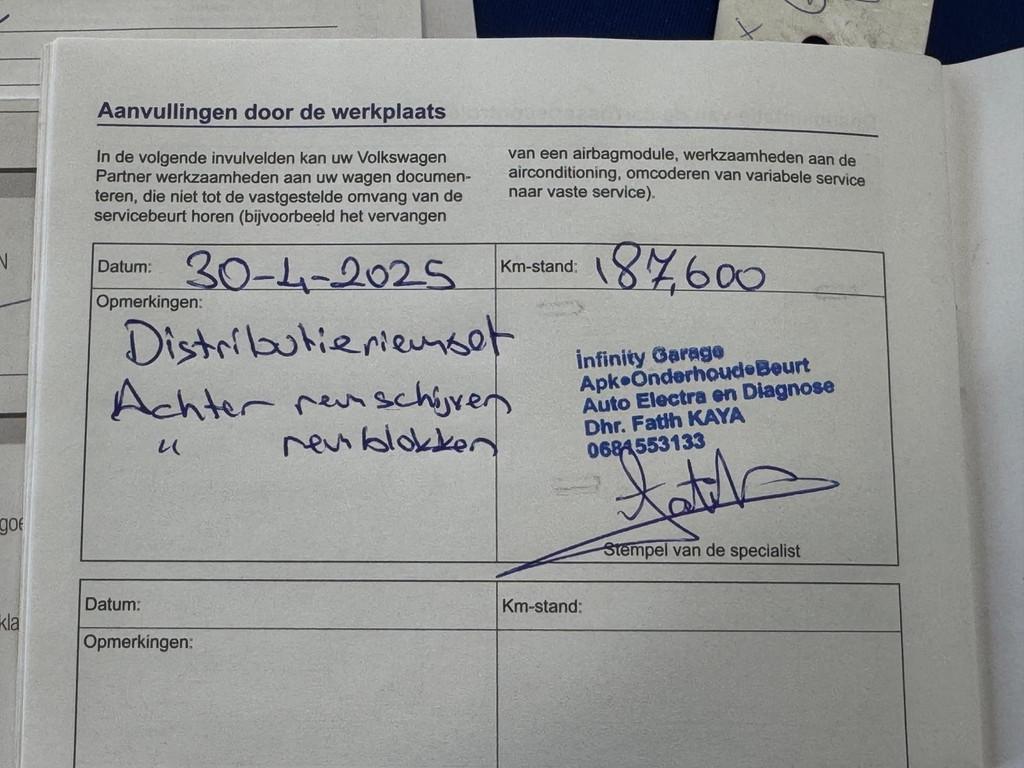 Aanvullingen door de werkplaats
In de volgende invulvelden kan uw Volkswagen
Partner werkzaamheden aan uw wagen documen-
teren, die niet tot de vastgestelde omvang van de
servicebeurt horen (bijvoorbeeld het vervangen
van een airbagmodule, werkzaamheden aan de
airconditioning, omcoderen van variabele service
naar vaste service).
Datum: 30-4-2025
Km-stand: 187,600
Opmerkingen:
Distributieriemset
Achter remschijven
" remblokken
infinity Garage
Apk•Onderhoud•Beurt
Auto Electra en Diagnose
Dhr. Fatih KAYA
0684553133
Fatih
Stempel van de specialist
Datum:
Km-stand:
Opmerkingen:
goe
kla